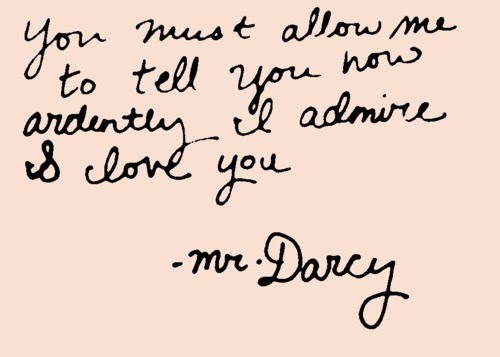 You must allow me
to tell you how
ardently I admire
& love you
-mr. Darcy